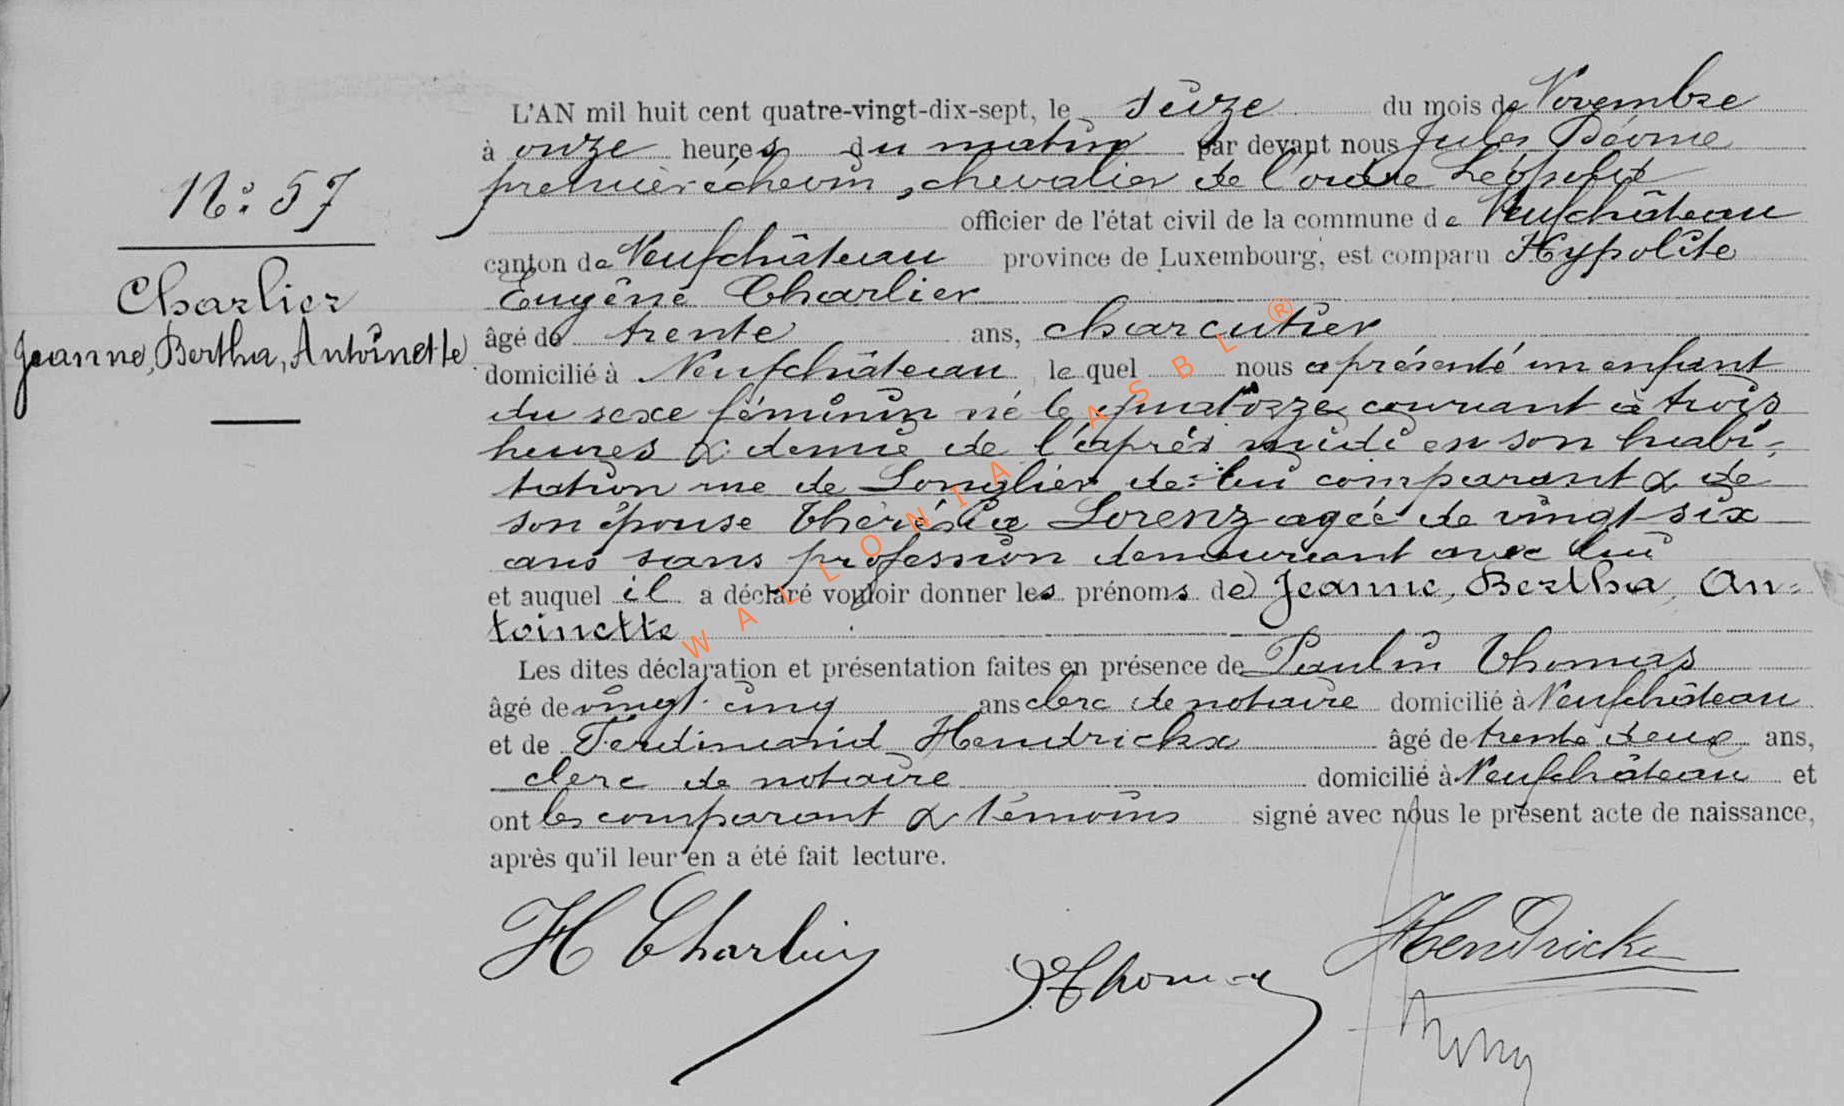 N° 57
Charlier
Jeanne, Bertha, Antoinette
L'AN mil huit cent quatre-vingt-dix-sept, le seize du mois de Novembre
à onze heures du matin par devant nous Jules
premier échevin, chevalier de l'ordre Léopold
officier de l'état civil de la commune de Neufchâteau
canton de Neufchâteau province de Luxembourg, est comparu Hypolite
Eugène Charlier
âgé de trente ans, charcutier
domicilié à Neufchâteau, le quel nous a présenté un enfant
du sexe féminin né le quatorze courant à trois
heures & demie de l'après midi en son habi-
tation rue de Longlier de lui comparant & de
son épouse Thérésia Lorenz agée de vingt-six
ans sans profession demeurant avec lui
et auquel il a déclaré vouloir donner les prénoms de Jeanne, Bertha, An=
toinette
Les dites déclaration et présentation faites en présence de Paulin Thomas
âgé de vingt-cinq ans clerc de notaire domicilié à Neufchâteau
et de Ferdinand Hendrickx âgé de trente deux ans,
clerc de notaire domicilié à Neufchâteau et
ont les comparant & témoins signé avec nous le présent acte de naissance,
après qu'il leur en a été fait lecture.
H Charlier
Thomas
Hendrickx
WALLONIA ASBL ®